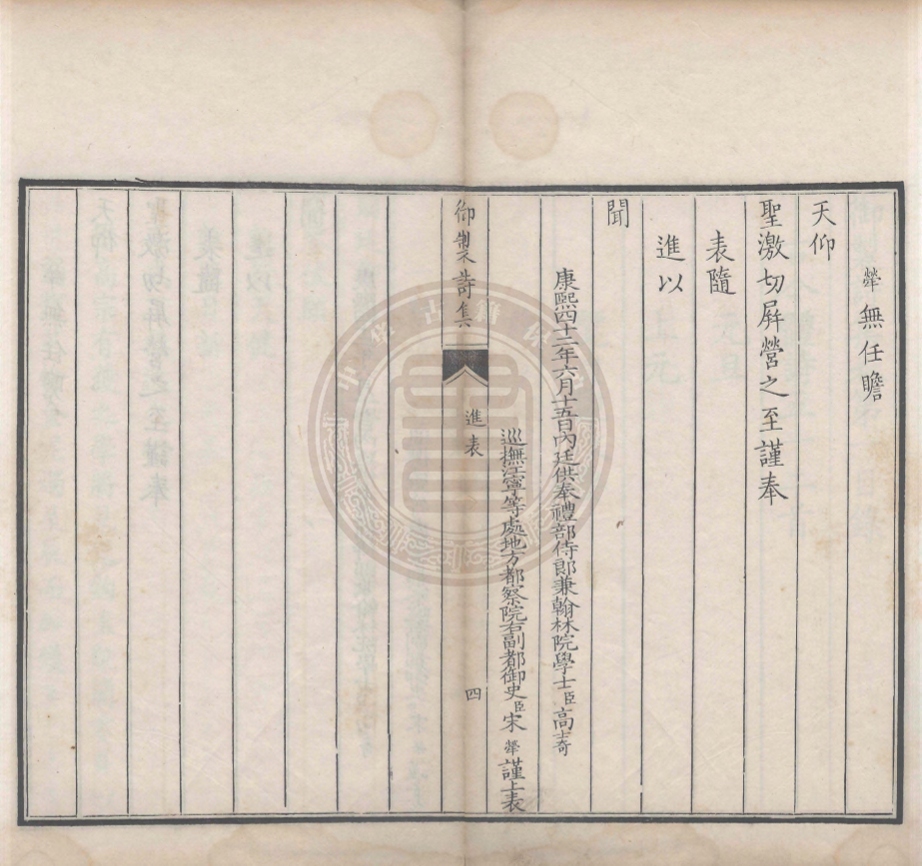 犖無任瞻
天仰
聖激切屏營之至謹奉
表隨
進以
聞
康熙四十二年六月十五日內廷供奉禮部侍郎兼翰林院學士臣高士奇
巡撫江寧等處地方都察院右副都御史臣宋犖謹上表
御製詩集
進表
四